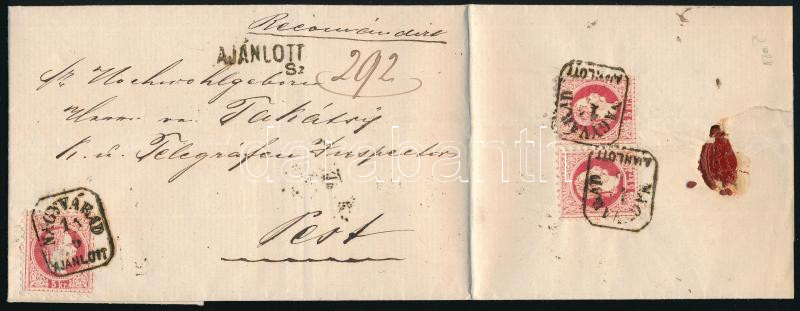 Recomandirt
AJÁNLOTT
Sz 292
Hochwohlgeboren
Herrn von Takátsy
K. u. Telegrafen Inspector
Pest
NAGYVÁRAD
AJÁNLOTT
5 kr
NAGYVÁRAD
AJÁNLOTT
NAGYVÁRAD
AJÁNLOTT
darabanth